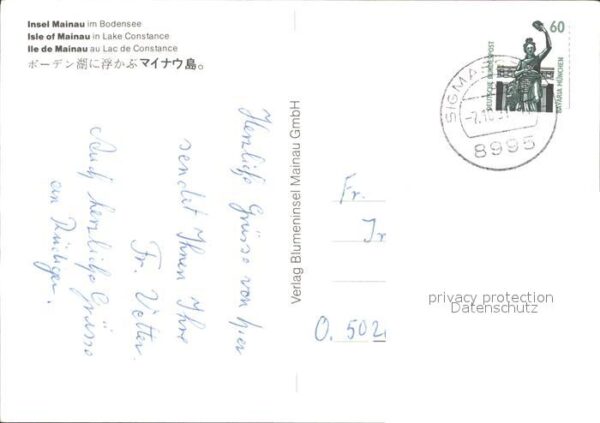 Insel Mainau im Bodensee
Isle of Mainau in Lake Constance
Ile de Mainau au Lac de Constance
ボーデン湖に浮かぶマイナウ島。
Herzliche Grüsse von hier
sendet Ihnen Ihre
Fr. Vetter.
Auch herzliche Grüsse
ein Rüdiger.
Verlag Blumeninsel Mainau GmbH
60
DEUTSCHE BUNDESPOST
BAVARIA MÜNCHEN
SIGMA
-7.10.
8995
Fr.
O. 502
privacy protection
Datenschutz